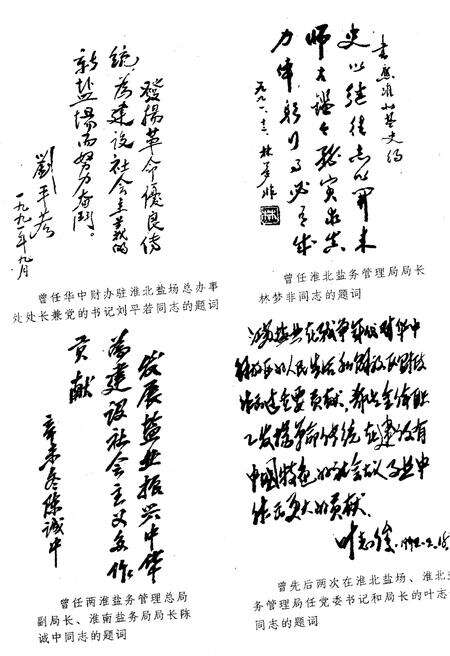 發揚革命優良傳
統,為建设社会主義的
新盐場而努力奋鬥。
劉平若
一九九一年九月
曾任华中财办驻淮北盐场总办事
处处长兼党的书记刘平若同志的题词
史以继往志以开来
林梦非
曾任淮北盐务管理局局长
林梦非同志的题词
发展盐业振兴中华
为建设社会主义多作
贡献
辛未冬陈诚中
曾任两淮盐务管理总局
副局长、淮南盐务局局长陈
诚中同志的题词
盐业在战争年代对华中
解放区的人民生活和解放区财政
作出过重要贡献,希望全体职
工发扬革命传统在建设有
中国特色的社会主义事业中
作出更大的贡献.
曾先后两次在淮北盐场、淮北
务管理局任党委书记和局长的叶志
同志的题词